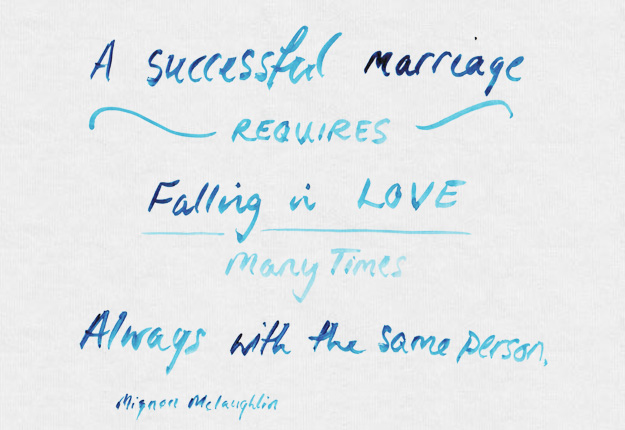 A successful marriage
REQUIRES
Falling in LOVE
Many Times
Always with the same person.
Mignon Mclaughlin